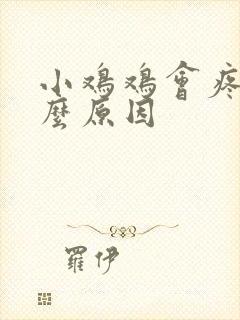 小鸡鸡會疼
麼原因
羅伊